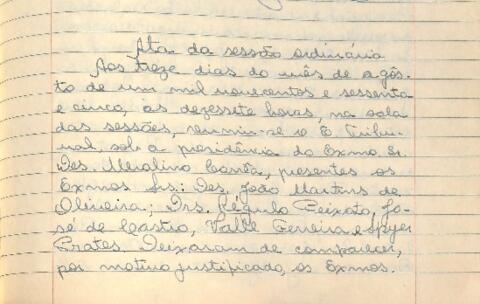 Ata da sessão ordinária
Aos treze dias do mês de agôs-
to de um mil novecentos e sessenta
e cinco, às dezessete horas, na sala
das sessões, reuniu-se o E. Tribu-
nal, sob a presidência do Exmo. Sr.
Des. Merolino Corrêa, presentes os
Exmos. Srs.: Des. João Martins de
Oliveira; Drs. Régulo Peixoto, Jo-
sé de Castro, Valle Ferreira e Spyer
Prates. Deixaram de comparecer,
por motivo justificado, os Exmos.